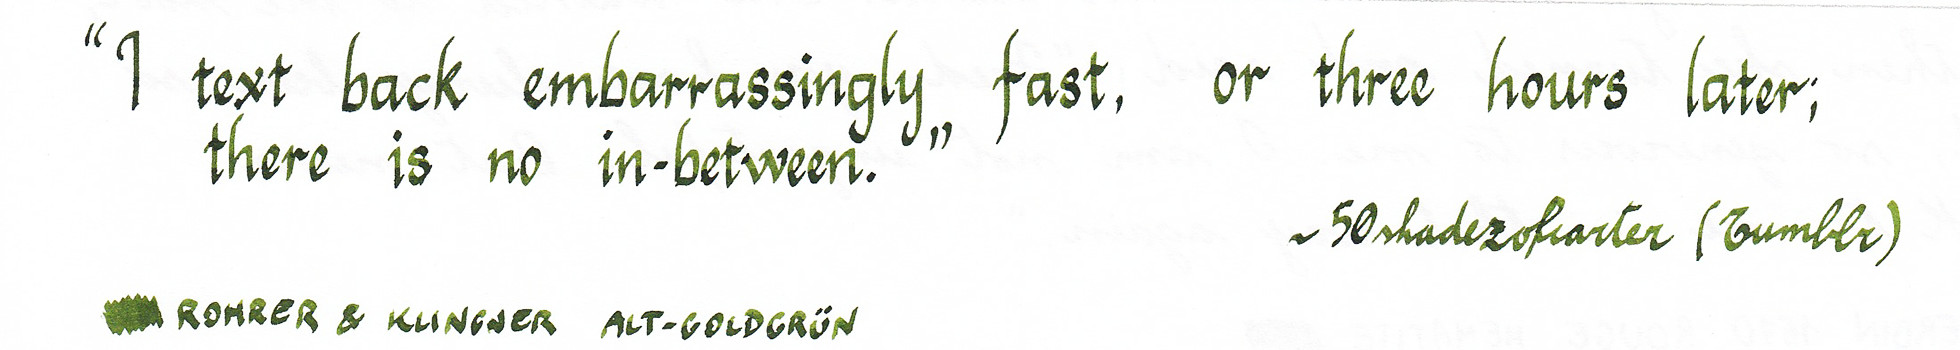 “I text back embarrassingly fast, or three hours later;
there is no in-between.”
~ 50shadezofcarter (Tumblr)
ROHRER & KLINGNER ALT-GOLDGRÜN